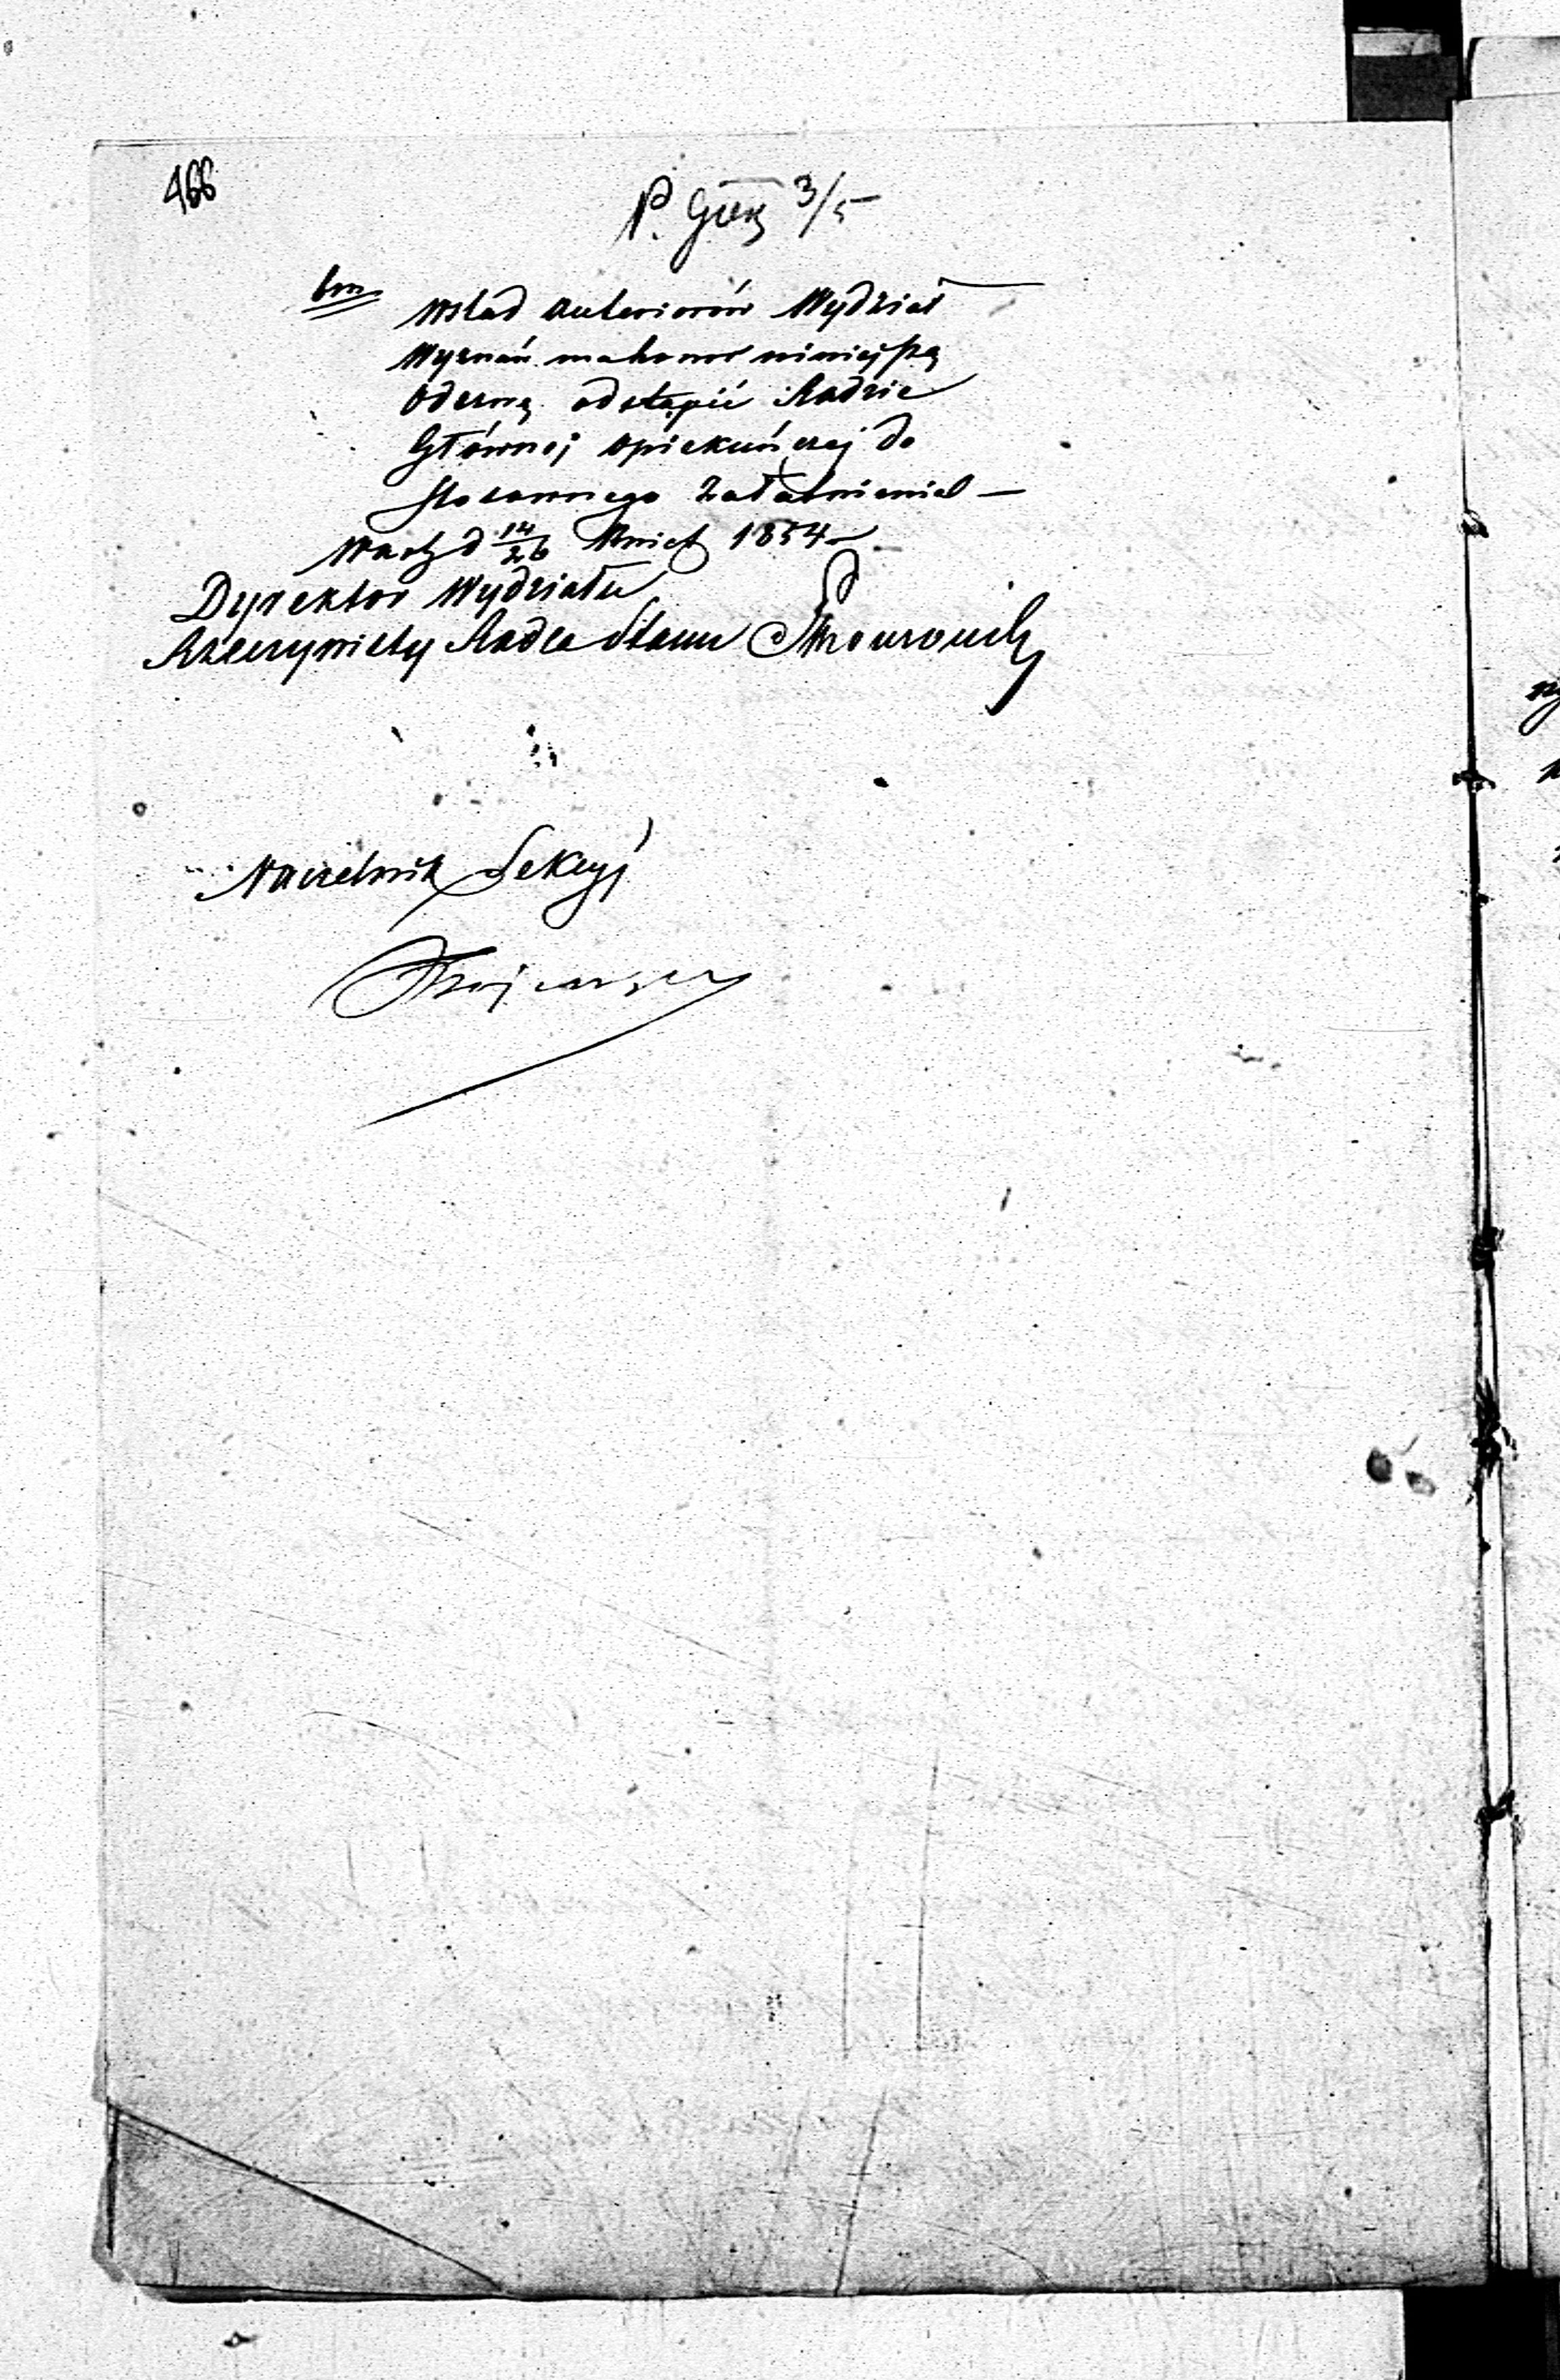 466
P. 3/5
bm
Wslad anteriorów Wydział
Wyznań ma honor niniejszą
Odezwę odstąpić Radzie
Głównej Opiekuńczej do
stosownego załatwienia —
d 14/26 Kwiet 1854 r
Dyrektor Wydziału
Rzeczywisty Radca Stanu
Naczelnik Sekcyi